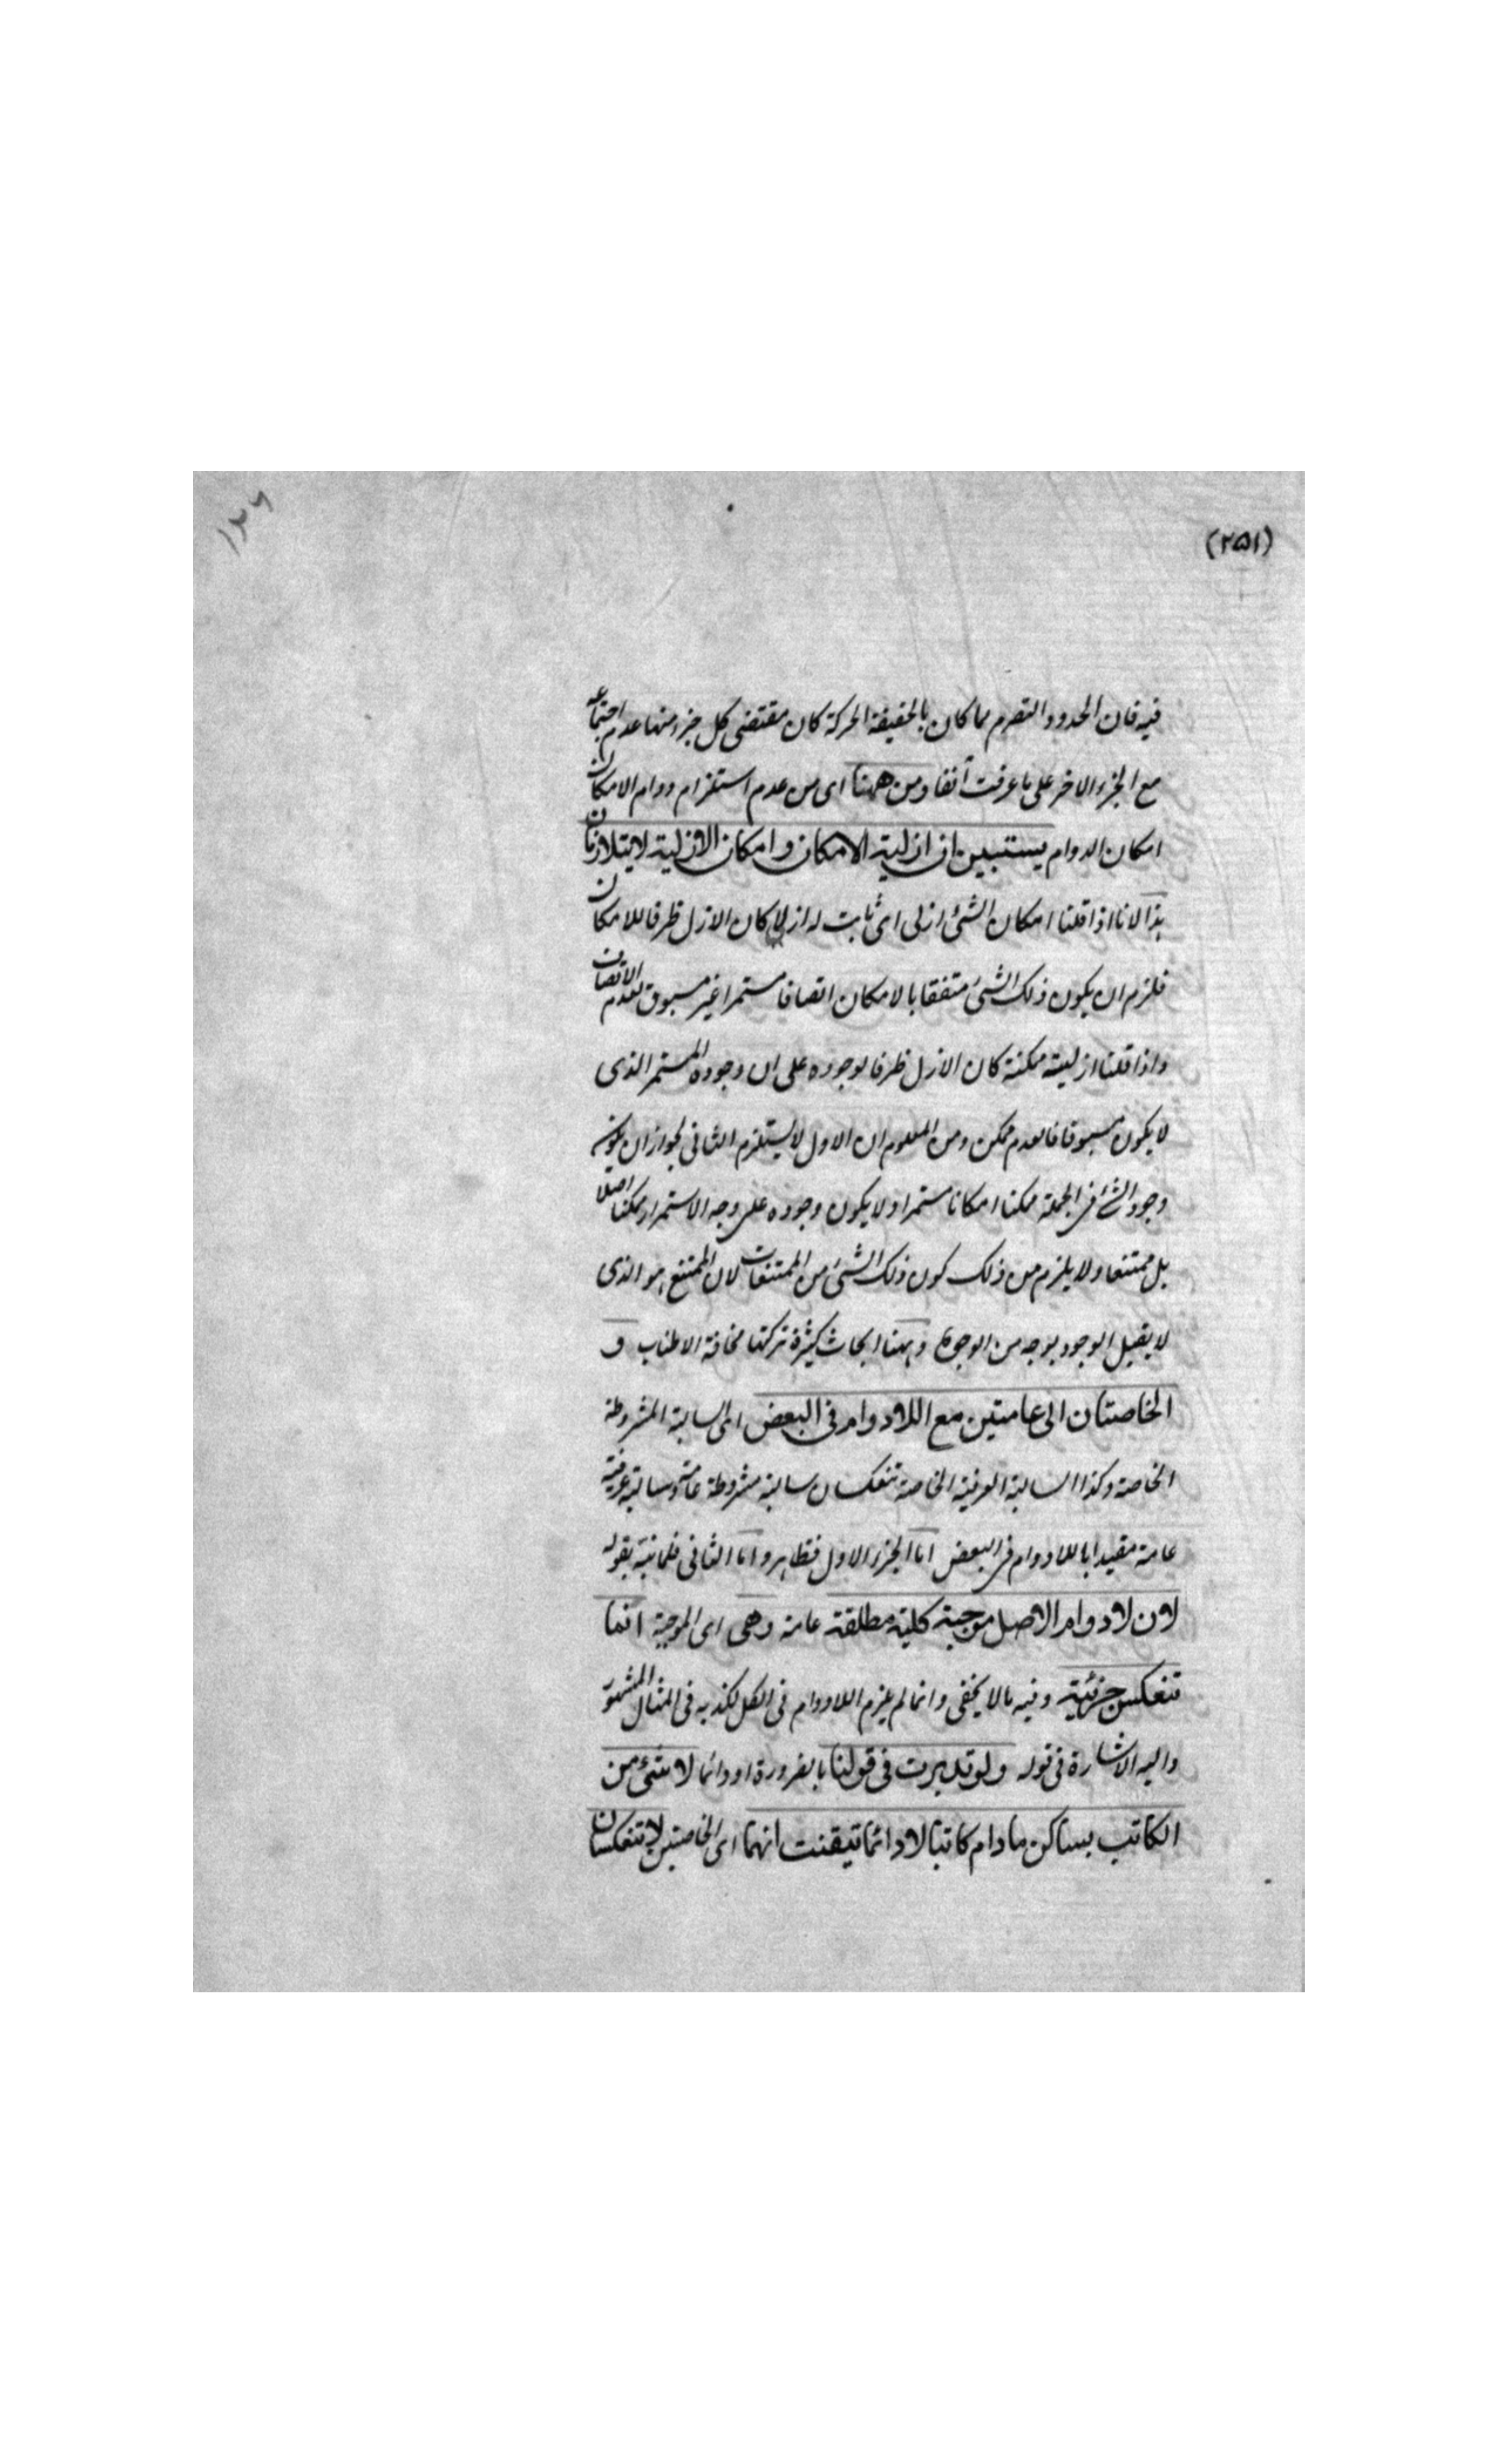 ۱۲۶
(۲۵۱)
فيه فان الحدود التصرم مما كان بالحقيقة الحركة كان مقتضى كل جزء منها عدم اجتماعه
مع الجزء الاخر على ما عرفت آنفا ومن ههنا اى من عدم استلزام دوام الامكان
امكان الدوام يستبين ان ازلية الامكان وامكان الازلية لا يتلازمان
هذا لانا اذا قلنا امكان الشئ ازلى اى ثابت له ازلا كان الازل ظرفا للامكان
فلزم ان يكون ذلك الشئ متفقا بالامكان اتصافا مستمرا غير مسبوق بعدم الاتصاف
واذا قلنا ازليته ممكنة كان الازل ظرفا لوجوده على ان وجوده المستمر الذى
لا يكون مسبوقا فالعدم ممكن ومن المعلوم ان الاول لا يستلزم الثانى لجواز ان يكون
وجود الشئ فى الجملة ممكنا امكانا مستمرا ولا يكون وجوده على وجه الاستمرار ممكنا اصلا
بل ممتنعا ولا يلزم من ذلك كون ذلك الشئ من الممتنعات لان الممتنع هو الذى
لا يقبل الوجود بوجه من الوجوه وههنا ابحاث كثيرة تركتها مخافة الاطناب و
الخاصتان الى عامتين مع اللادوام فى البعض اى السالبة المشروطة
الخاصة وكذا السالبة العرفية الخاصة تنعكسان سالبة مشروطة عامة وسالبة عرفية
عامة مقيدا باللادوام فى البعض اما الجزء الاول فظاهر واما الثانى فلما نبه بقوله
لان لادوام الاصل موجبة كلية مطلقة عامة وهى اى الموجبة انما
تنعكس جزئية وفيه ما لا يخفى وانما لم يلزم اللادوام فى الكل لكذبه فى المثال المشهور
واليه الاشارة فى قوله ولو تدبرت فى قولنا بالضرورة او دائما لا شئ من
الكاتب بساكن ما دام كاتبا لا دائما تيقنت انهما اى الخاصتين لا تنعكسان